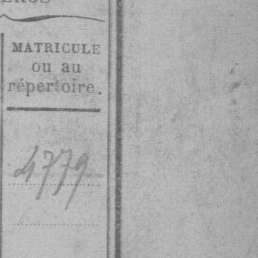 MATRICULE
ou au
répertoire.
4779